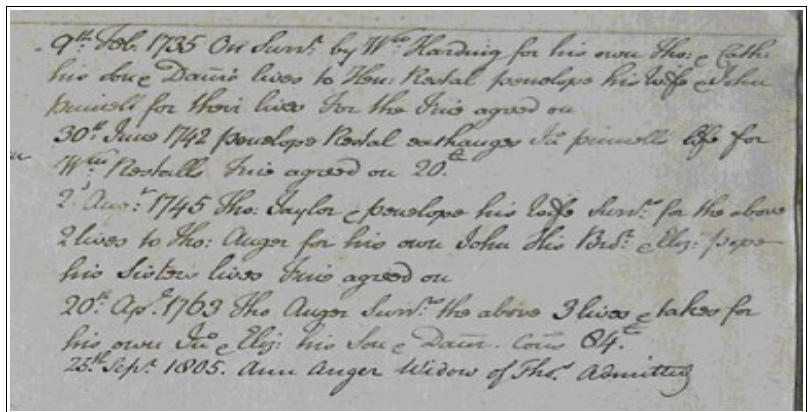 9th Feb. 1735 On Surrr. by Wm. Harding for his own Tho: & Cath:
his Son & Daur's lives to Hen: Restal penelope his Wife & John
pinnell for their lives For the Fine agreed on
30th June 1742 penelope Restal exchanges Jn. pinnells life for
Wm Restalls Fine agreed on 20£
2d Augt: 1745 Tho: Taylor & penelope his Wife Surrr. for the above
2 lives to Tho: Anger for his own John his Bror. & Eliz: pope
his Sisters lives Fine agreed on
20th Apl. 1763 Tho Anger Surrr. the above 3 lives & takes for
his own Jn. & Eliz: his Son & Daur. Cons 84£
25th Sept. 1805. Ann Anger Widow of Thos. Admitted